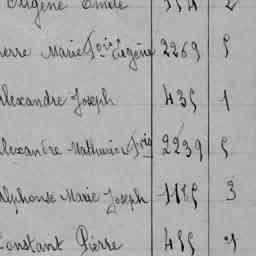 Eugène Emile 554 2
ierre Marie Fois Eugène 2269 5
Alexandre Joseph 435 1
Alexandre Mathurin Fois 2239 5
Alphonse Marie Joseph 1185 3
Constant Pierre 455